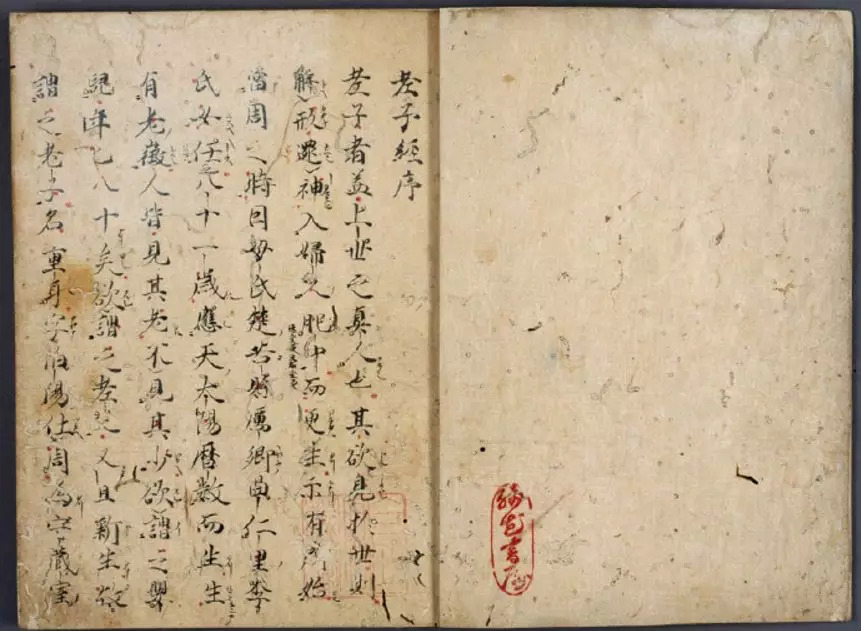 老子經序
老子者蓋上世之真人也其欲見於世則
解形還神入婦人胞中而更生示有所始
當周之時因母氏楚苦縣厲鄉曲仁里李
氏女任八十一歲應天太陽曆數而生生
有老徵人皆見其老不見其少欲謂之嬰
兒年已八十矣欲謂之老父又且新生故
謂之老子名重耳字伯陽仕周為守藏室
書屋